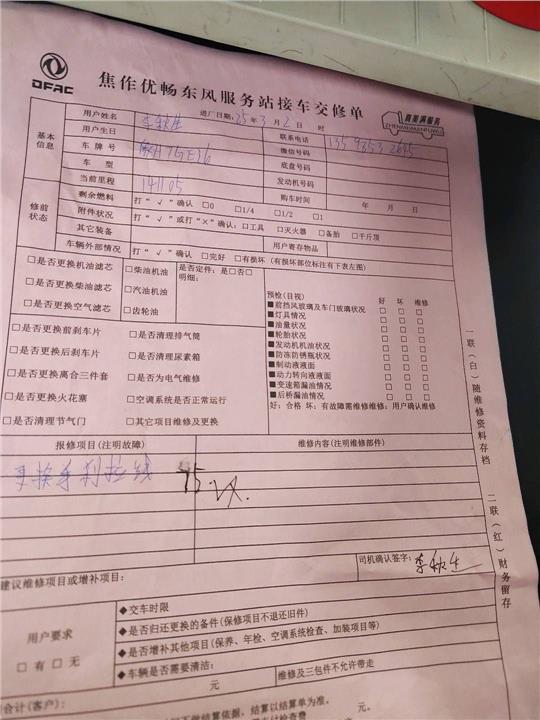 DFAC
焦作优畅东风服务站接车交修单
真美满服务
ZHENMEIMANFUWU
基本信息
用户姓名 李秋生 进厂日期: 25年3月2日 时
用户生日 联系电话
车牌号 微信号码
车型 底盘号码
当前里程 141105 发动机号码
修前状态
剩余燃料 打“√”确认 □0 □1/4 □1/2 □1 购车时间 年 月 日
附件状况 打“√”或打“×”确认:□工具 □灭火器 □备胎 □千斤顶
其它装备 用户寄存物品
车辆外部情况 打“√”确认 □完好 □有损坏(有损坏部位标注有下表左图)
□是否更换机油滤芯 □柴油机油 是否定件:是□否□
□是否更换柴油滤芯 □汽油机油 明细:
□是否更换空气滤芯 □齿轮油
□是否更换前刹车片 □是否清理排气筒
□是否更换后刹车片 □是否清理尿素箱
□是否更换离合三件套 □是否为电气维修
□是否更换火花塞 □空调系统是否正常运行
□是否清理节气门 □其它项目维修及更换
预检(目视) 好 坏 维修
■前挡风玻璃及车门玻璃状况 □ □ □
■灯具情况 □ □ □
■油量状况 □ □ □
■轮胎状况 □ □ □
■发动机机油状况 □ □ □
■防冻防锈瓶状况 □ □ □
■制动液液面 □ □ □
■动力转向液液面 □ □ □
■变速箱漏油情况 □ □ □
■后桥漏油情况 □ □ □
好:合格 坏:有故障需维修维修:用户确认维修
报修项目(注明故障) 维修内容(注明维修部件)
更换手刹拉线
司机确认签字: 李秋生
建议维修项目或增补项目:
用户要求
□有□无
◆交车时限
◆是否归还更换的备件(保修项目不退还旧件)
◆是否增补其他项目(保养、年检、空调系统检查、加装项目等)
◆车辆是否需要清洁: 维修及三包件不允许带走
合计(客户): 元 元
一联(白)随维修资料存档
二联(红)财务留存